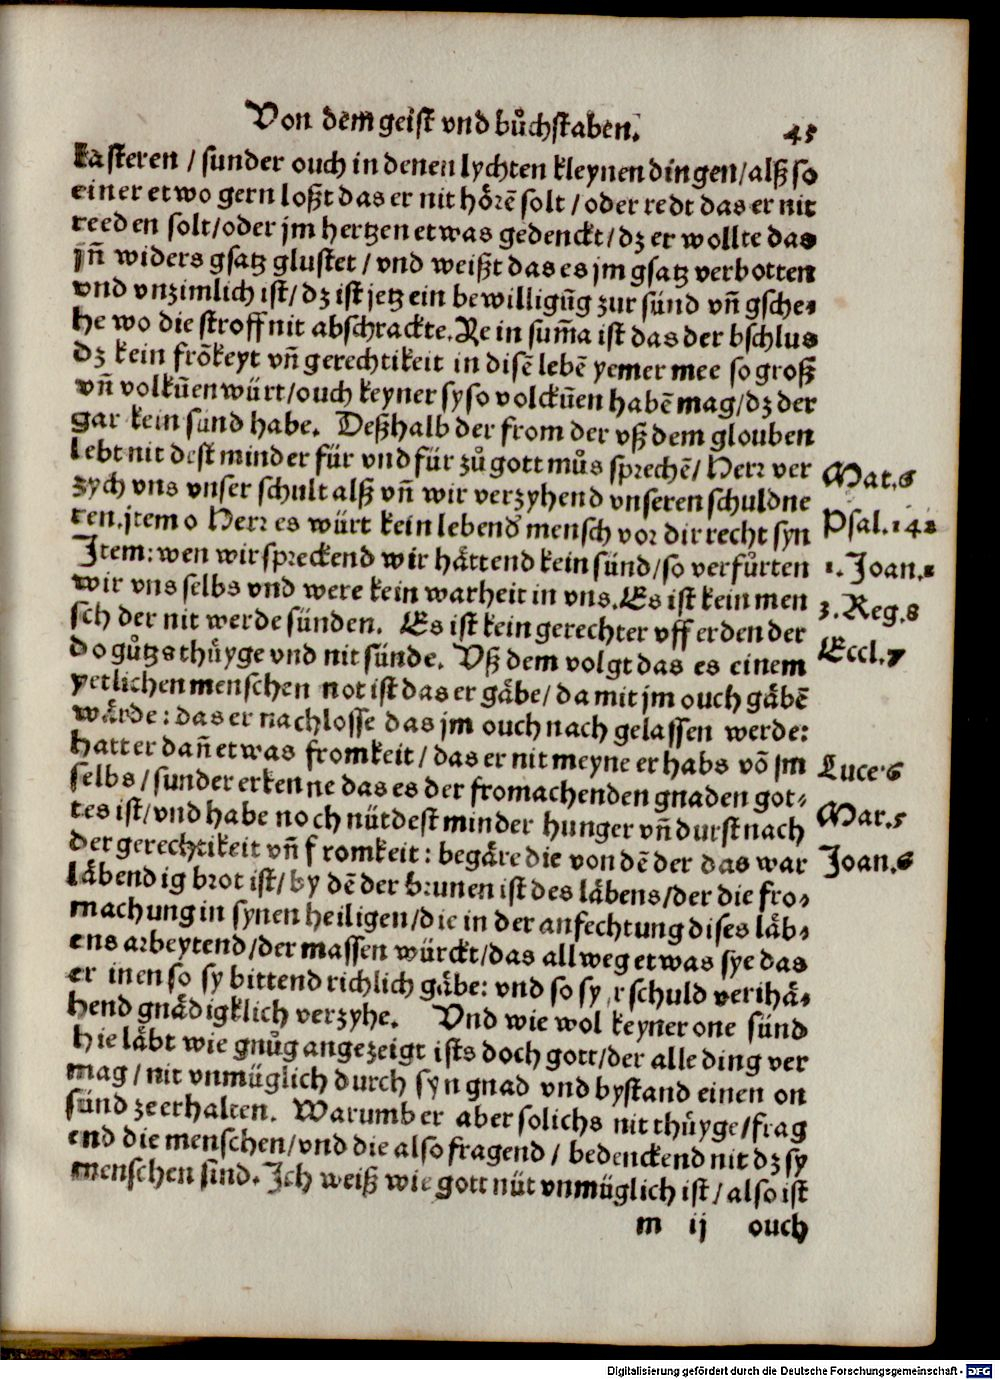 Von dem geist vnd bůchstaben. 45
lasteren / sunder ouch in denen lychten kleynen dingen / alß so
einer etwo gern loßt das er nit hörē solt / oder redt das er nit
reeden solt / oder jm hertzen etwas gedenckt / dz er wollte das
jn̄ widers gsatz glustet / vnd weißt das es jm gsatz verbotten
vnd vnzimlich ist / dz ist jetz ein bewilligūg zur sünd vn̄ gsche⸗
he wo die stroff nit abschrackte. Re in sum̄a ist das der bschlus
dz kein frōkeyt vn̄ gerechtikeit in disē lebē yemer mee so groß
vn̄ volkūen würt / ouch keyner sy so volckūen habē mag / dz der
gar kein sünd habe. Deßhalb der from der vß dem glouben
lebt nit dest minder für vnd für zů gott můs sprechē / Herr ver
zych vns vnser schult alß vn̄ wir verzyhend vnseren schuldne
ren. jtem o Herr es würt kein lebend mensch vor dir recht syn
Item: wen wir spreckend wir hättend kein sünd / so verfůrten
wir vns selbs vnd were kein warheit in vns. Es ist kein men
sch der nit werde sünden. Es ist kein gerechter vff erden der
do gůtzs thüyge vnd nit sünde. Vß dem volgt das es einem
yetlichen menschen not ist das er gäbe / da mit jm ouch gäbē
wärde: das er nachlosse das jm ouch nach gelassen werde:
hatt er dan̄ etwas fromkeit / das er nit meyne er habs vō jm
selbs / sunder erkenne das es der fromachenden gnaden got⸗
tes ist / vnd habe noch nütdest minder hunger vn̄ durst nach
der gerechtikeit vn̄ fromkeit: begäre die von dē der das war
läbendig brot ist / by dē der brunen ist des läbens / der die fro⸗
machung in synen heiligen / die in der anfechtung dises läb⸗
ens arbeytend / der massen würckt / das allweg etwas sye das
er inen so sy bittend richlich gäbe: vnd so sy schuld verihä⸗
hend gnädigklich verzyhe. Vnd wie wol keyner one sünd
hie läbt wie gnůg angezeigt ists doch gott / der alle ding ver
mag / nit vnmüglich durch syn gnad vnd bystand einen on
sünd ze erhalten. Warumb er aber solichs nit thüyge / frag
end die menschen / vnd die also fragend / bedenckend nit dz sy
menschen sind. Ich weiß wie gott nüt vnmüglich ist / also ist
m ij ouch
Mat. 6
Psal. 142
1. Joan. 1
3. Reg. 8
Eccl. 7
Luce. 6
Mar. 5
Joan. 6
Digitalisierung gefördert durch die Deutsche Forschungsgemeinschaft - DFG